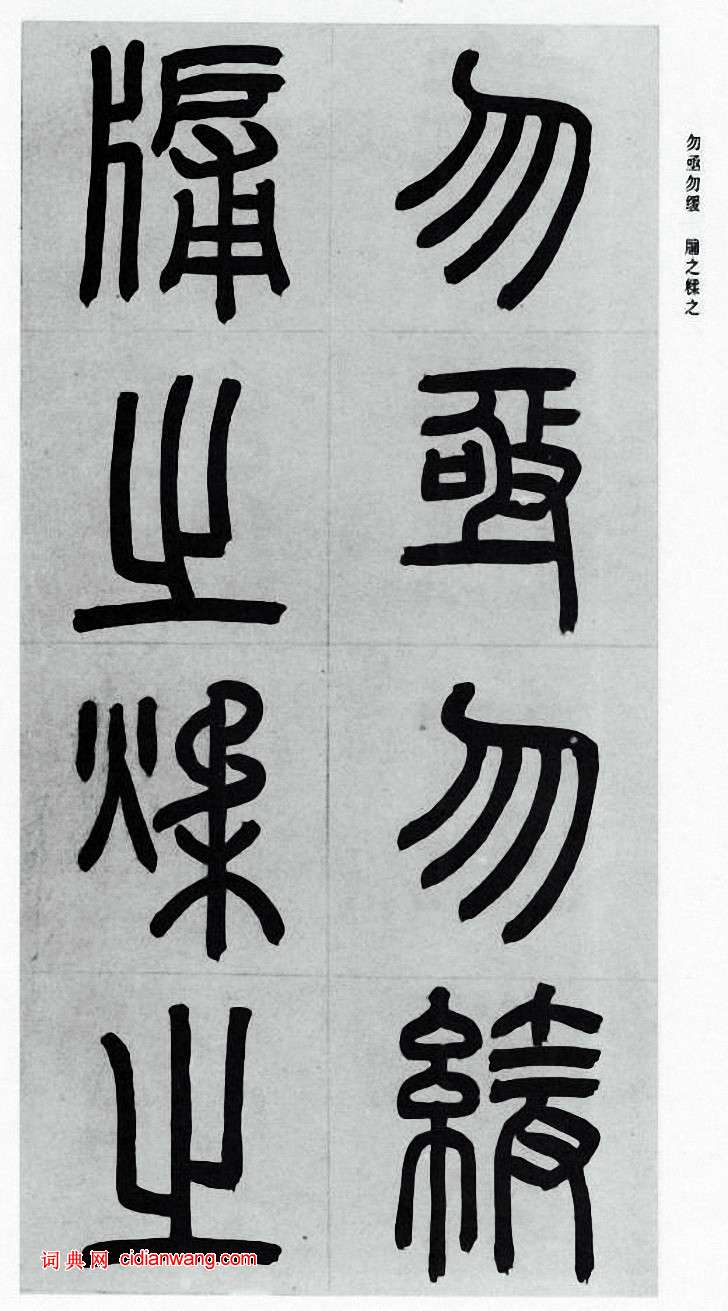 勿亟勿缓 牖之煣之
勿亟勿緩
牖之煣之
词典网 cidianwang.com